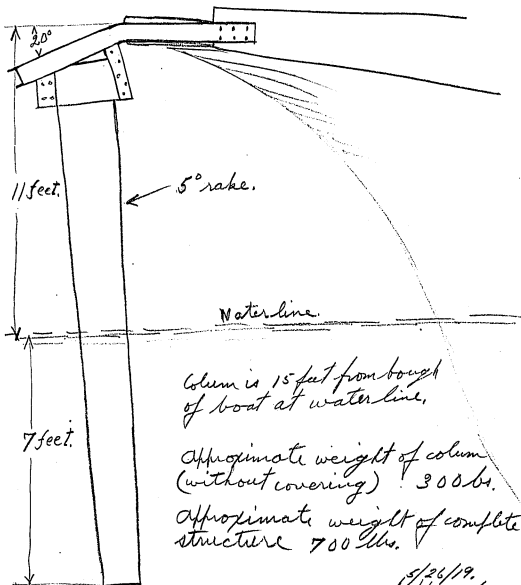 20°
11 feet.
5° rake.
Water line.
7 feet.
Colum is 15 feet from bough
of boat at water line.
Approximate weight of colum
(without covering) 300 lbs.
Approximate weight of complete
structure 700 lbs.
5/26/19.